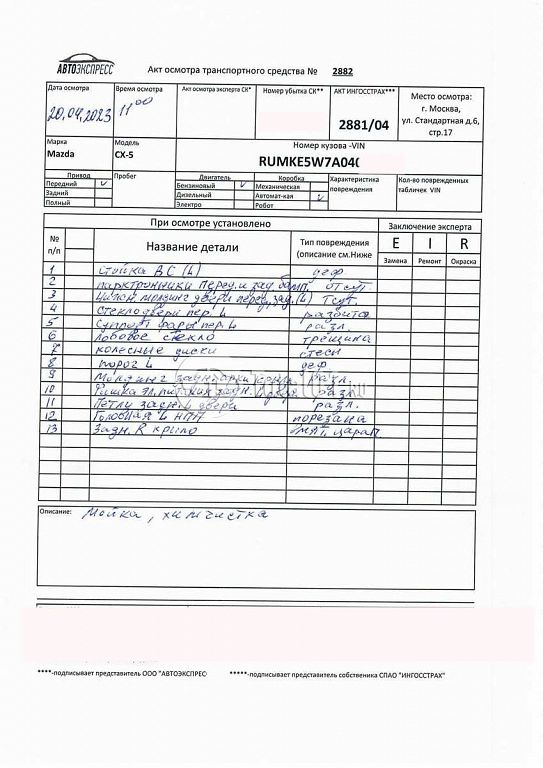 АВТОЭКСПРЕСС
Акт осмотра транспортного средства № 2882
Дата осмотра
20,04,2023
Время осмотра
11 00
Акт осмотра эксперта СК*
Номер убытка СК**
АКТ ИНГОССТРАХ***
2881/04
Место осмотра:
г. Москва,
ул. Стандартная д.6,
стр.17
Марка
Mazda
Модель
CX-5
Номер кузова -VIN
RUMKE5W7A04
Привод
Передний v
Задний
Полный
Пробег
Двигатель
Бензиновый v
Дизельный
Электро
Коробка
Механическая
Автомат-кая v
Робот
Характеристика
повреждения
Кол-во поврежденных
табличек VIN
При осмотре установлено
Заключение эксперта
№
п/п
Название детали
Тип повреждения
(описание см.Ниже
E I R
Замена Ремонт Окраска
1 стойка ВС (L) деф
2 парктронники перед. и зад. бамп. отсут.
3 молдинг двери перед, зад, (L) отсут.
4 стекло двери пер. L разбито
5 суппорт фары пер. L разл.
6 лобовое стекло трещина
7 колесные диски стеси
8 порог L деф
9 Молдинг задн арки разл.
10 задн. разл.
11 Петли задн. L двери разл.
12 L НПП порезана
13 Задн. R крыло царап
Описание: Мойка, химчистка
****-подписывает представитель ООО "АВТОЭКСПРЕС
*****-подписывает представитель собственика СПАО "ИНГОССТРАХ"